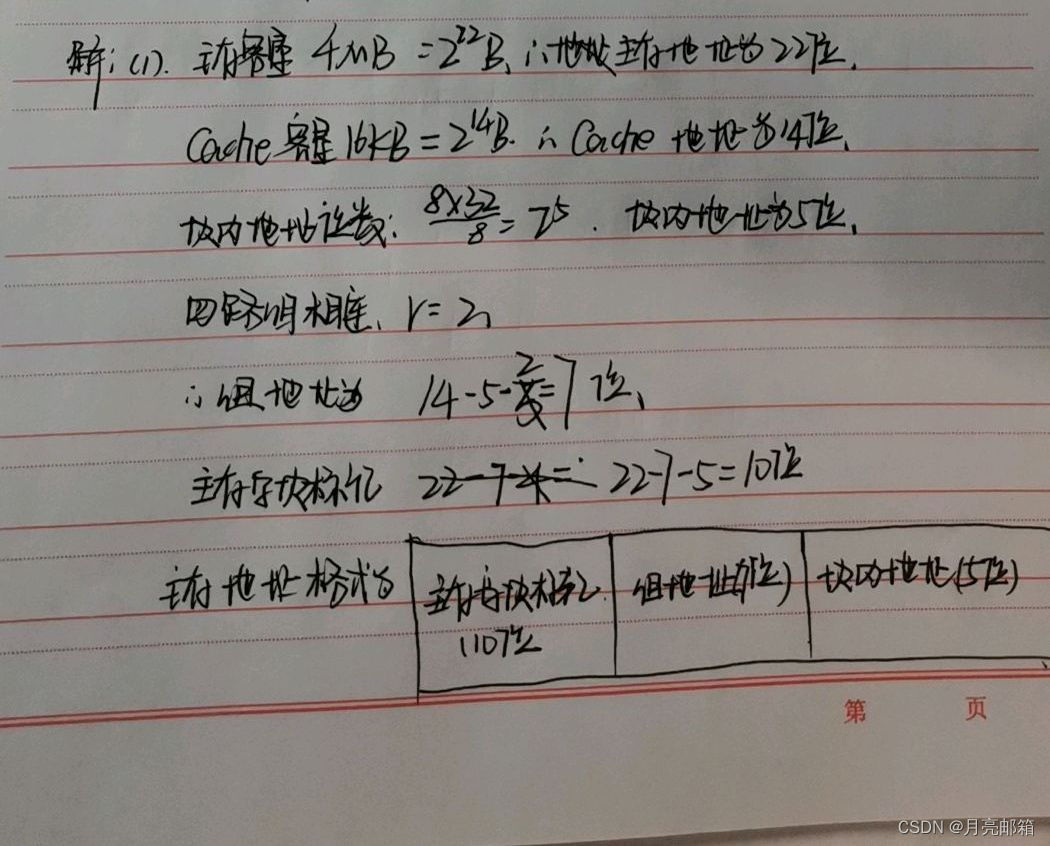 解：(1). 主存容量 4MB = 2^22B, ∴地址主存地址为22位,
Cache 容量 16KB = 2^14B. ∴ Cache 地址为14位,
块内地址位数: 8×32/8 = 2^5. 块内地址为5位,
四路组相连, r = 2,
∴组地址为 14-5-2=7位,
主存字块标记 22-7- = 22-7-5=10位
主存地址格式为 主存字块标记 (10位 组地址(7位) 块内地址(5位)
第 页
CSDN @月亮邮箱